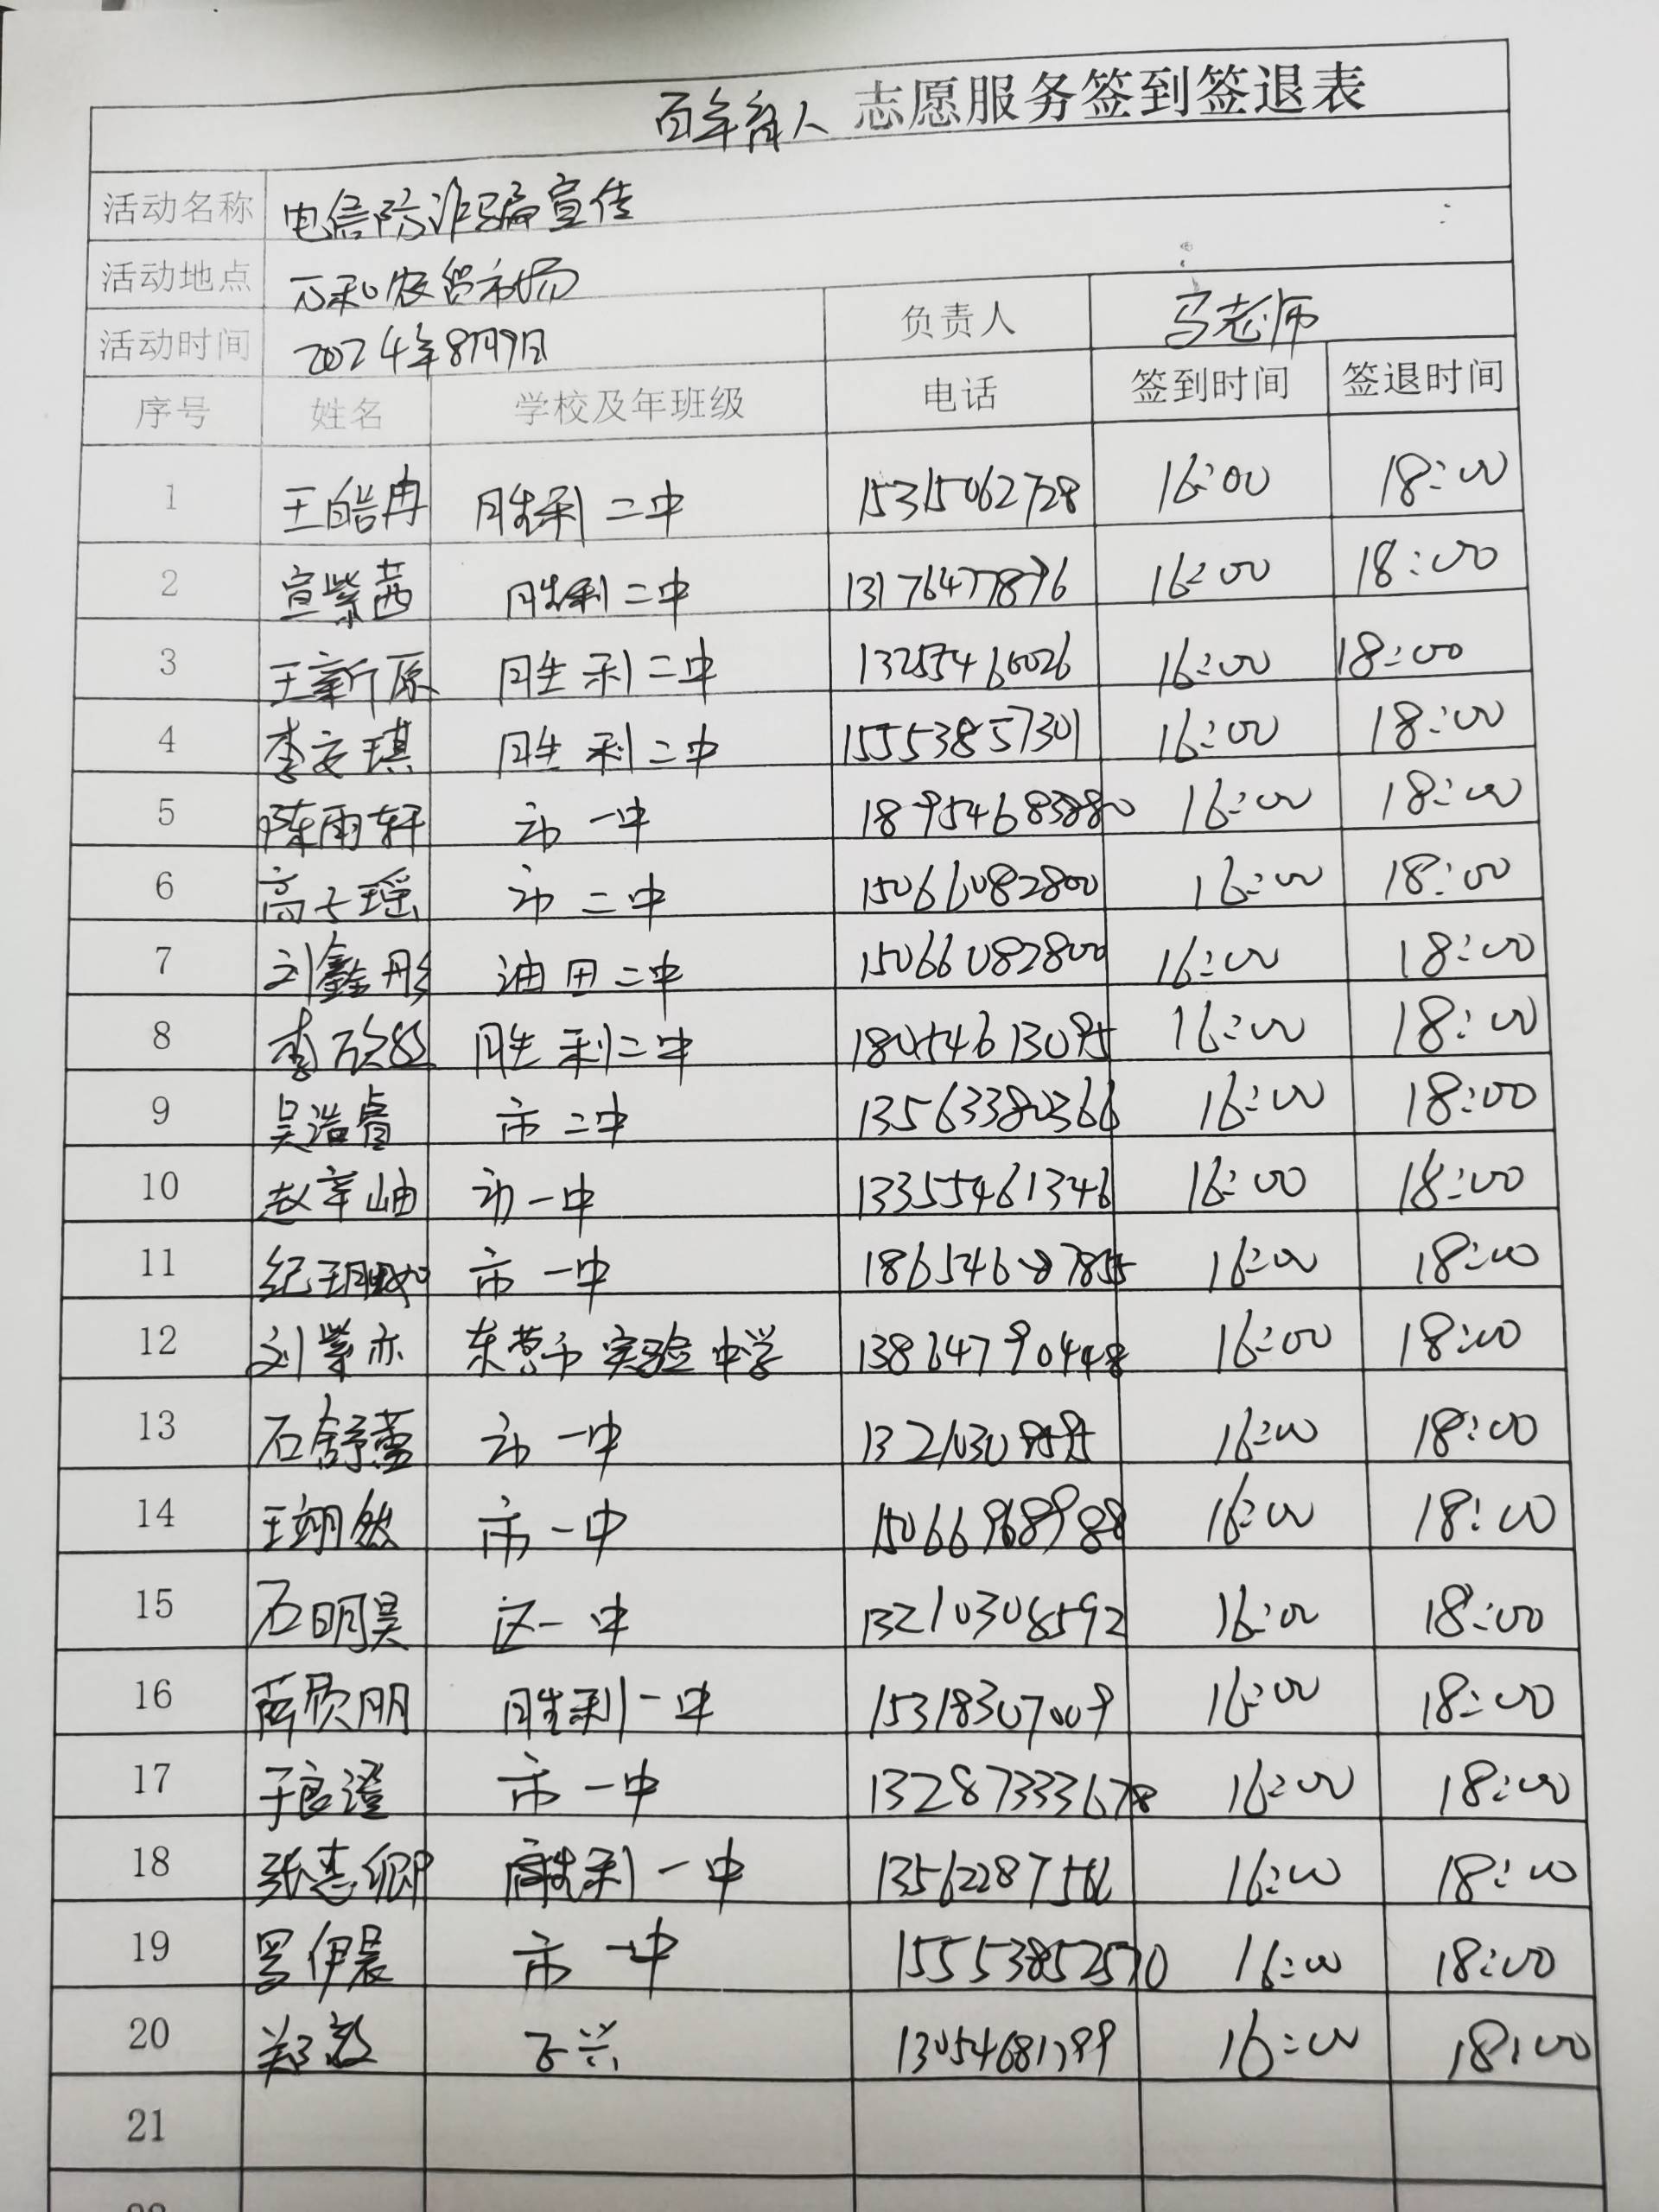 百年育人 志愿服务签到签退表
活动名称 电信防诈骗宣传
活动地点 万和农贸市场
活动时间 2024年8月9日 负责人 马老师
序号 姓名 学校及年班级 电话 签到时间 签退时间
1 王皓冉 胜利二中 15315062728 16:00 18:00
2 宣紫茜 胜利二中 13176477876 16:00 18:00
3 王新原 胜利二中 13257466026 16:00 18:00
4 李安琪 胜利二中 15553857301 16:00 18:00
5 陈雨轩 市一中 18954683880 16:00 18:00
6 高子瑶 市二中 15066082800 16:00 18:00
7 刘鑫彤 油田二中 15066082800 16:00 18:00
8 李欣 胜利二中 18054613095 16:00 18:00
9 吴浩睿 市二中 13563380366 16:00 18:00
10 赵辛岫 市一中 13355461346 16:00 18:00
11 纪 市一中 16:00 18:00
12 刘紫亦 东营市实验中学 13864790448 16:00 18:00
13 石舒蕾 市一中 16:00 18:00
14 王翊然 市一中 15066968988 16:00 18:00
15 石明昊 区一中 13210308592 16:00 18:00
16 薛欣朋 胜利一中 15318307009 16:00 18:00
17 于良澄 市一中 13287333678 16:00 18:00
18 张惠卿 胜利一中 16:00 18:00
19 罗伊晨 市一中 15553852570 16:00 18:00
20 郑 16:00 18:00
21